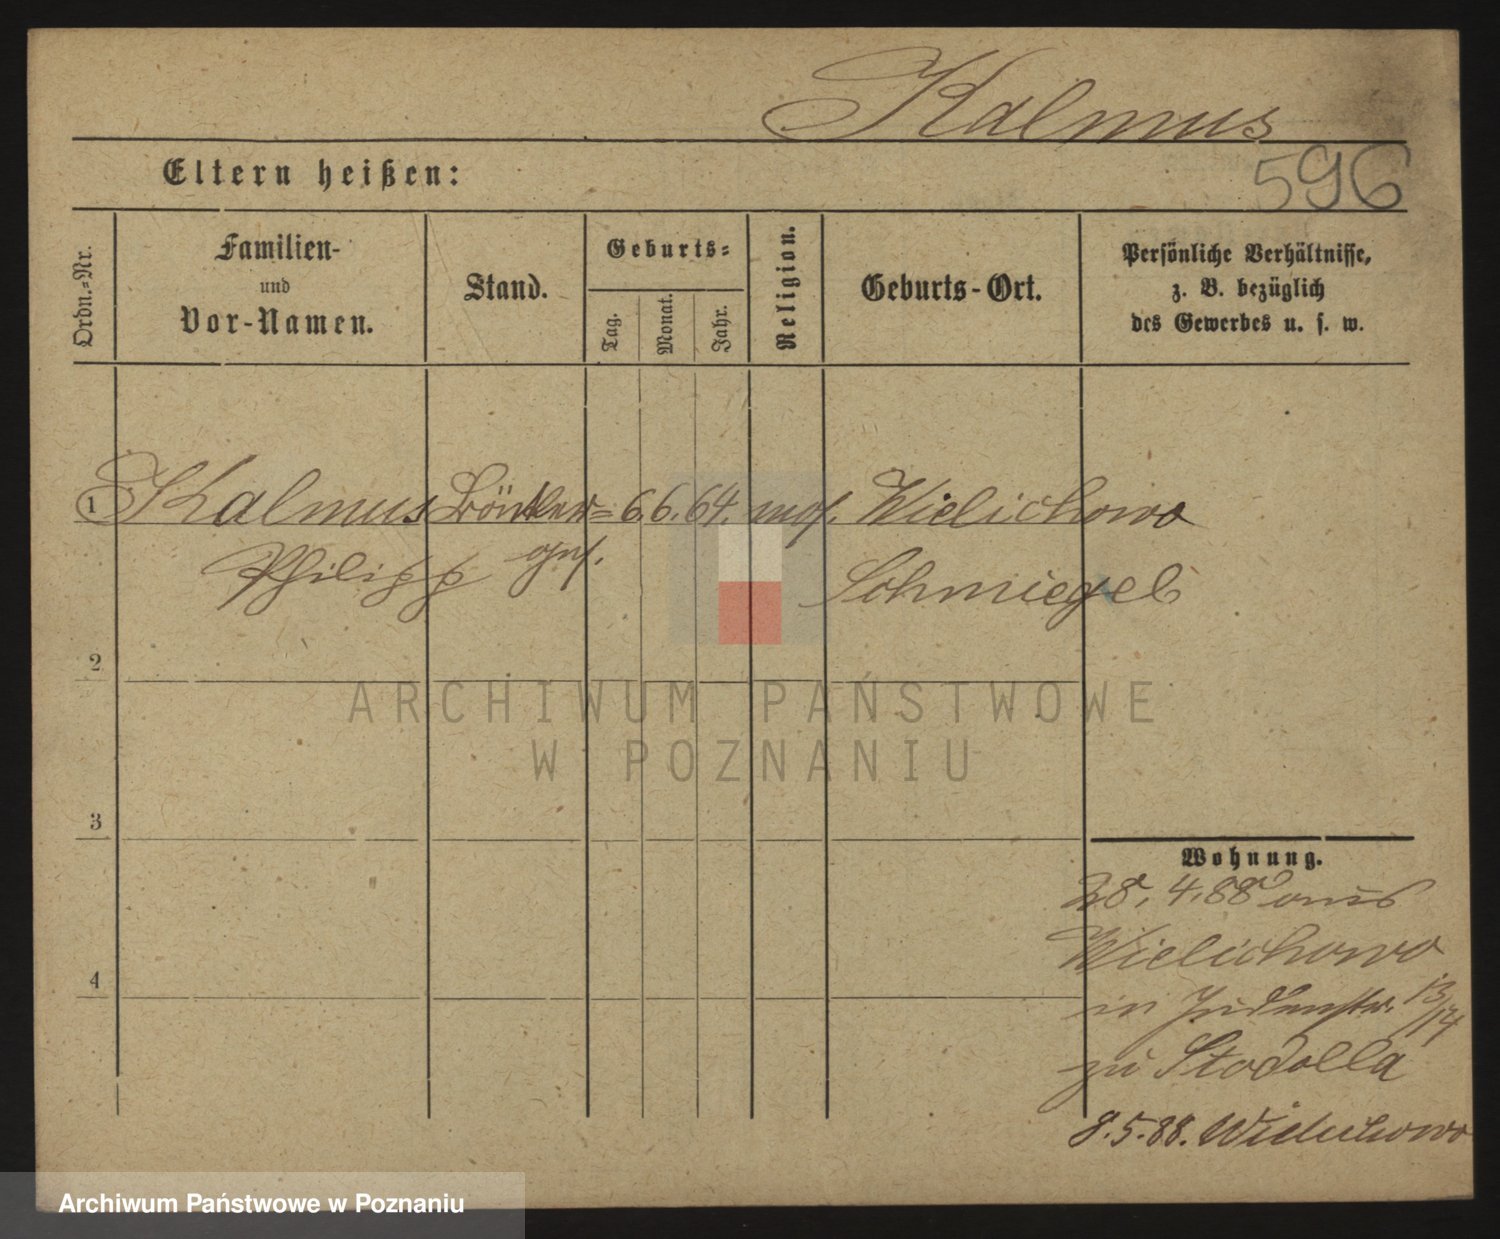 Kalmus
Eltern heißen:
596
Ordn.=Nr.
Familien-
und
Vor-Namen.
Stand.
Geburts=
Tag.
Monat.
Jahr.
Religion.
Geburts-Ort.
Persönliche Verhältnisse,
z. B. bezüglich
des Gewerbes u. s. w.
1 Kalmus 6. 6. 64. mos. Wielichowo
Philipp Schmiegel
2
ARCHIWUM PAŃSTWOWE
W POZNANIU
3
Wohnung.
28. 4. 88 aus
Wielichowo
4
in Judenstr. 13/14
zu Stodolla
8. 5. 88. Wielichowo
Archiwum Państwowe w Poznaniu